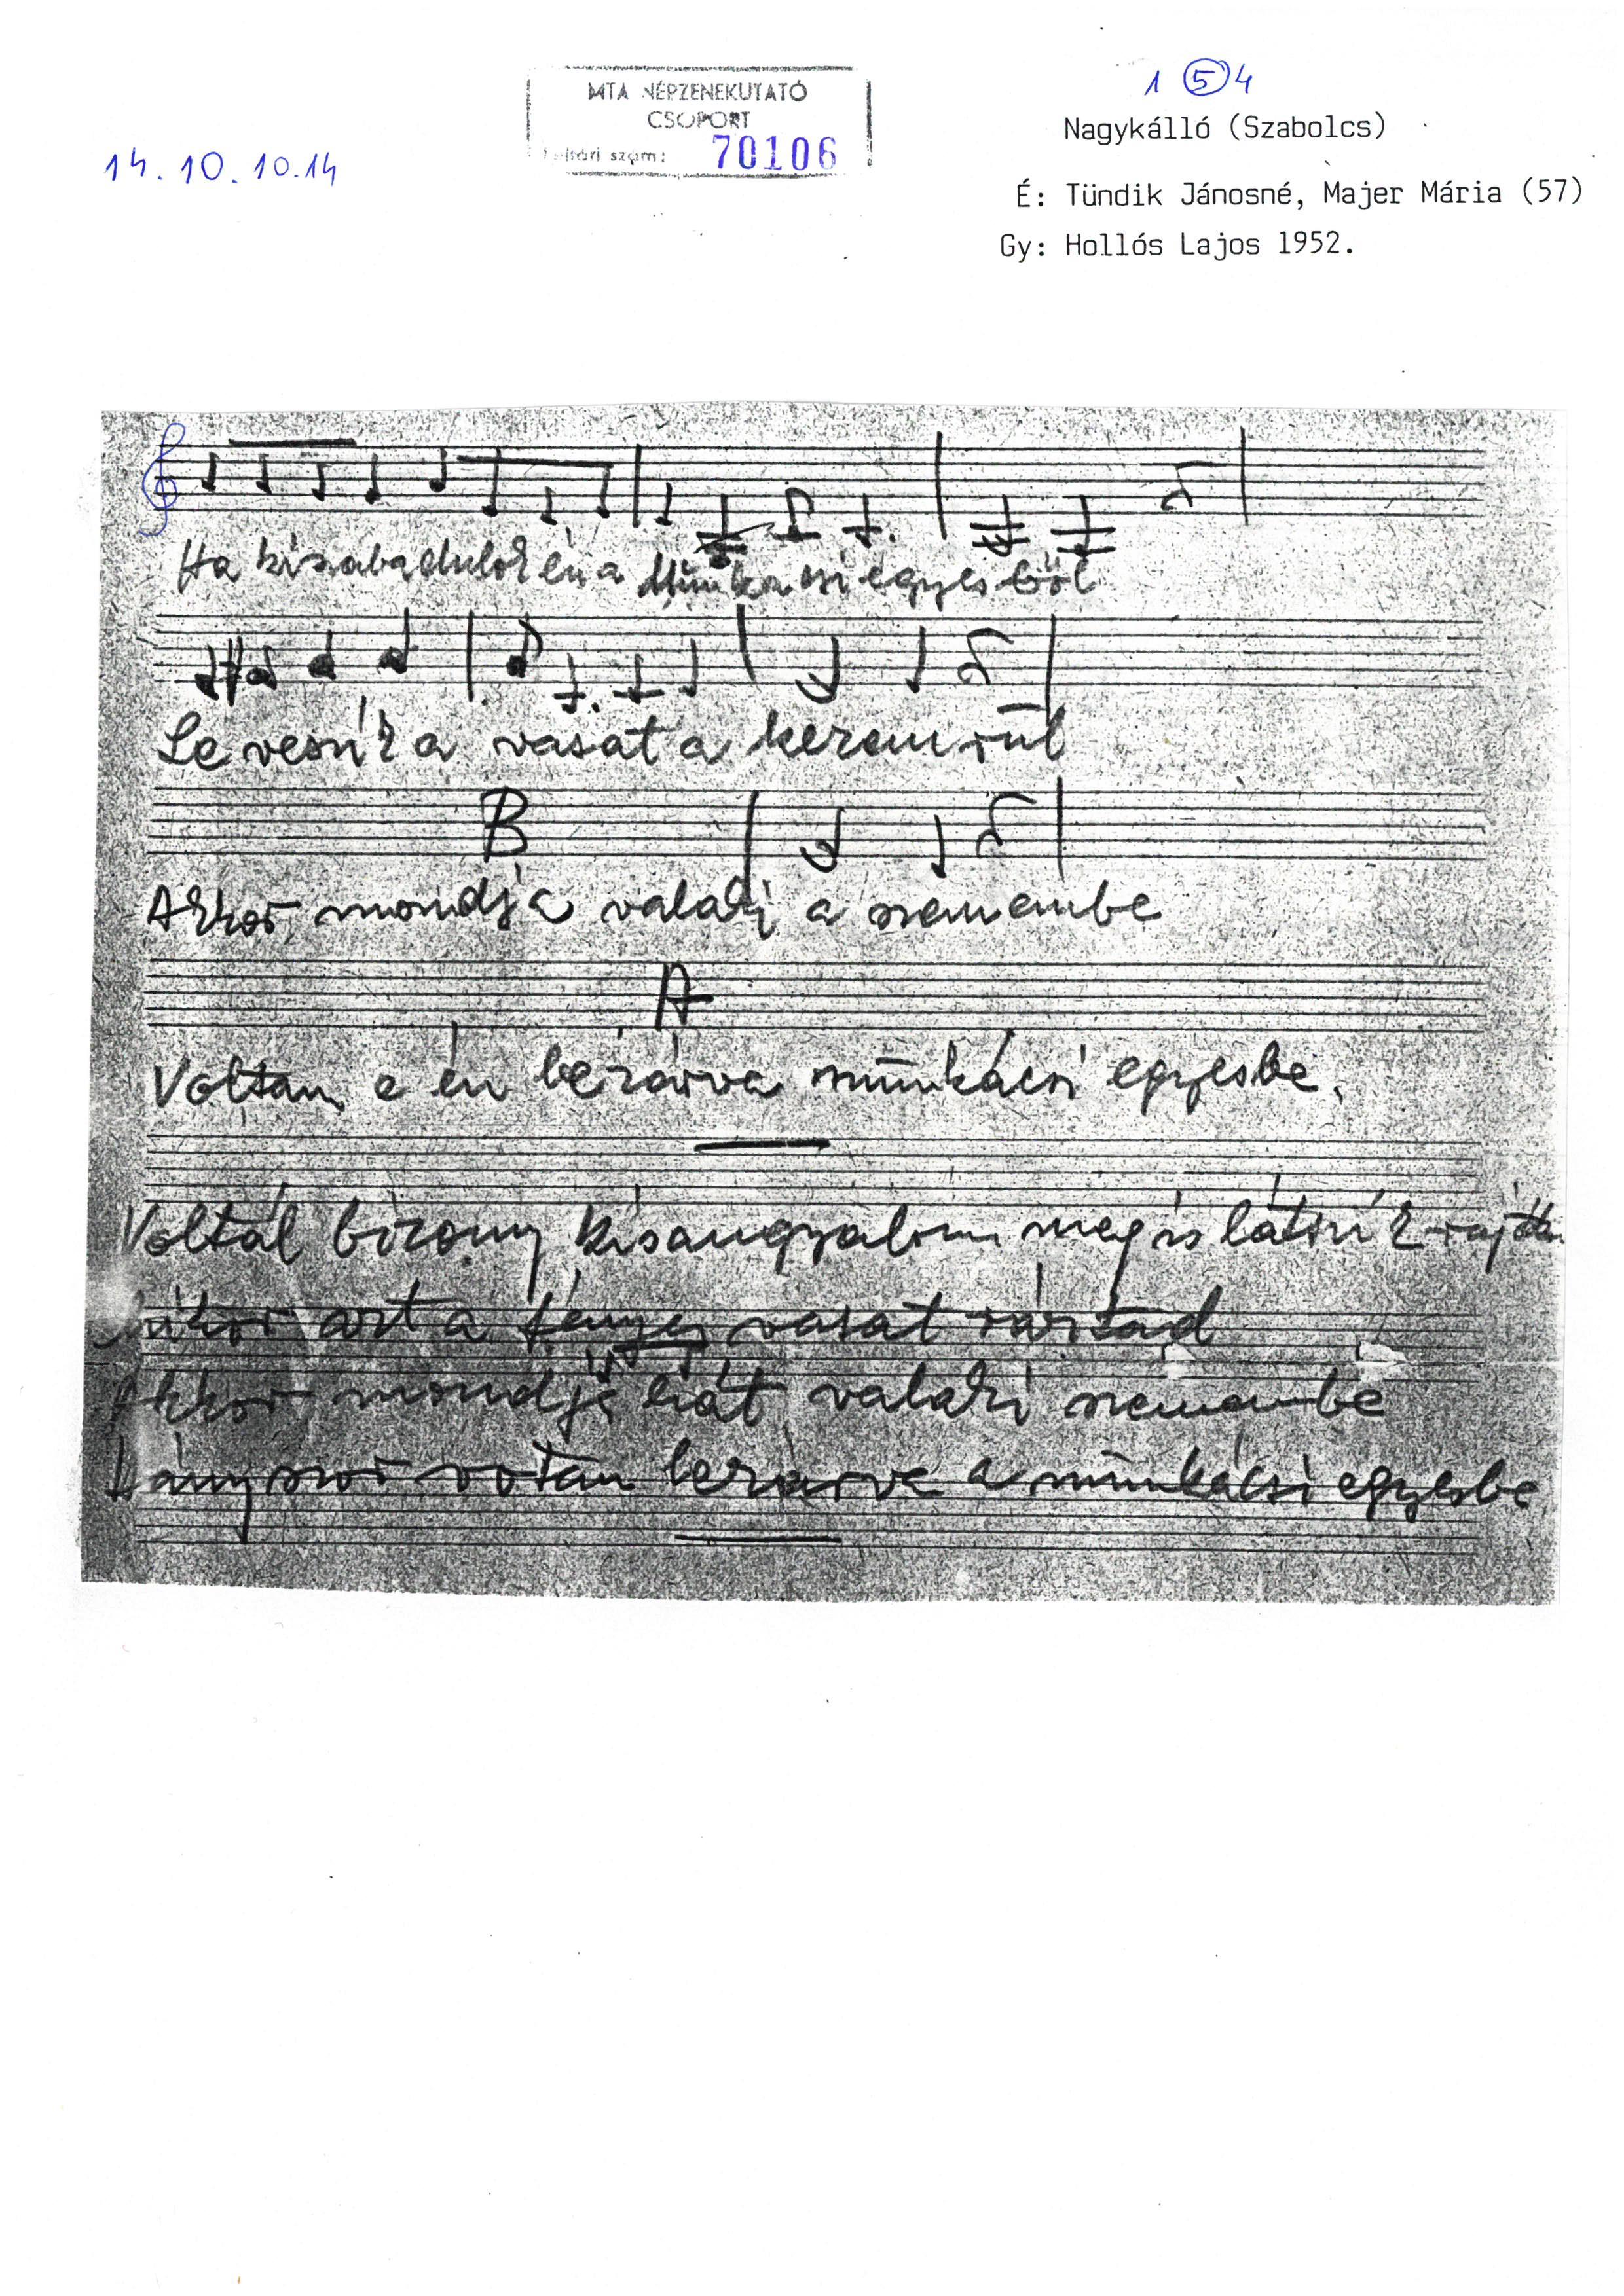 MTA NÉPZENEKUTATÓ
CSOPORT
szám: 70106
14. 10. 10. 14
1 5 4
Nagykálló (Szabolcs)
É: Tündik Jánosné, Majer Mária (57)
Gy: Hollós Lajos 1952.
Ha kiszabadulok én a Munkácsi egyesből
Le veszik a vasat a kezemrűl
B
Akkor mondja valaki a szemembe
A
Voltam e én bezárva munkácsi egyesbe,
Voltál bizony kisangyalom meg is látszik rajtad
azt a fényes vasat ráztad
Akkor mondja hát valaki szemembe
Hányszor votam bezárva a munkácsi egyesbe